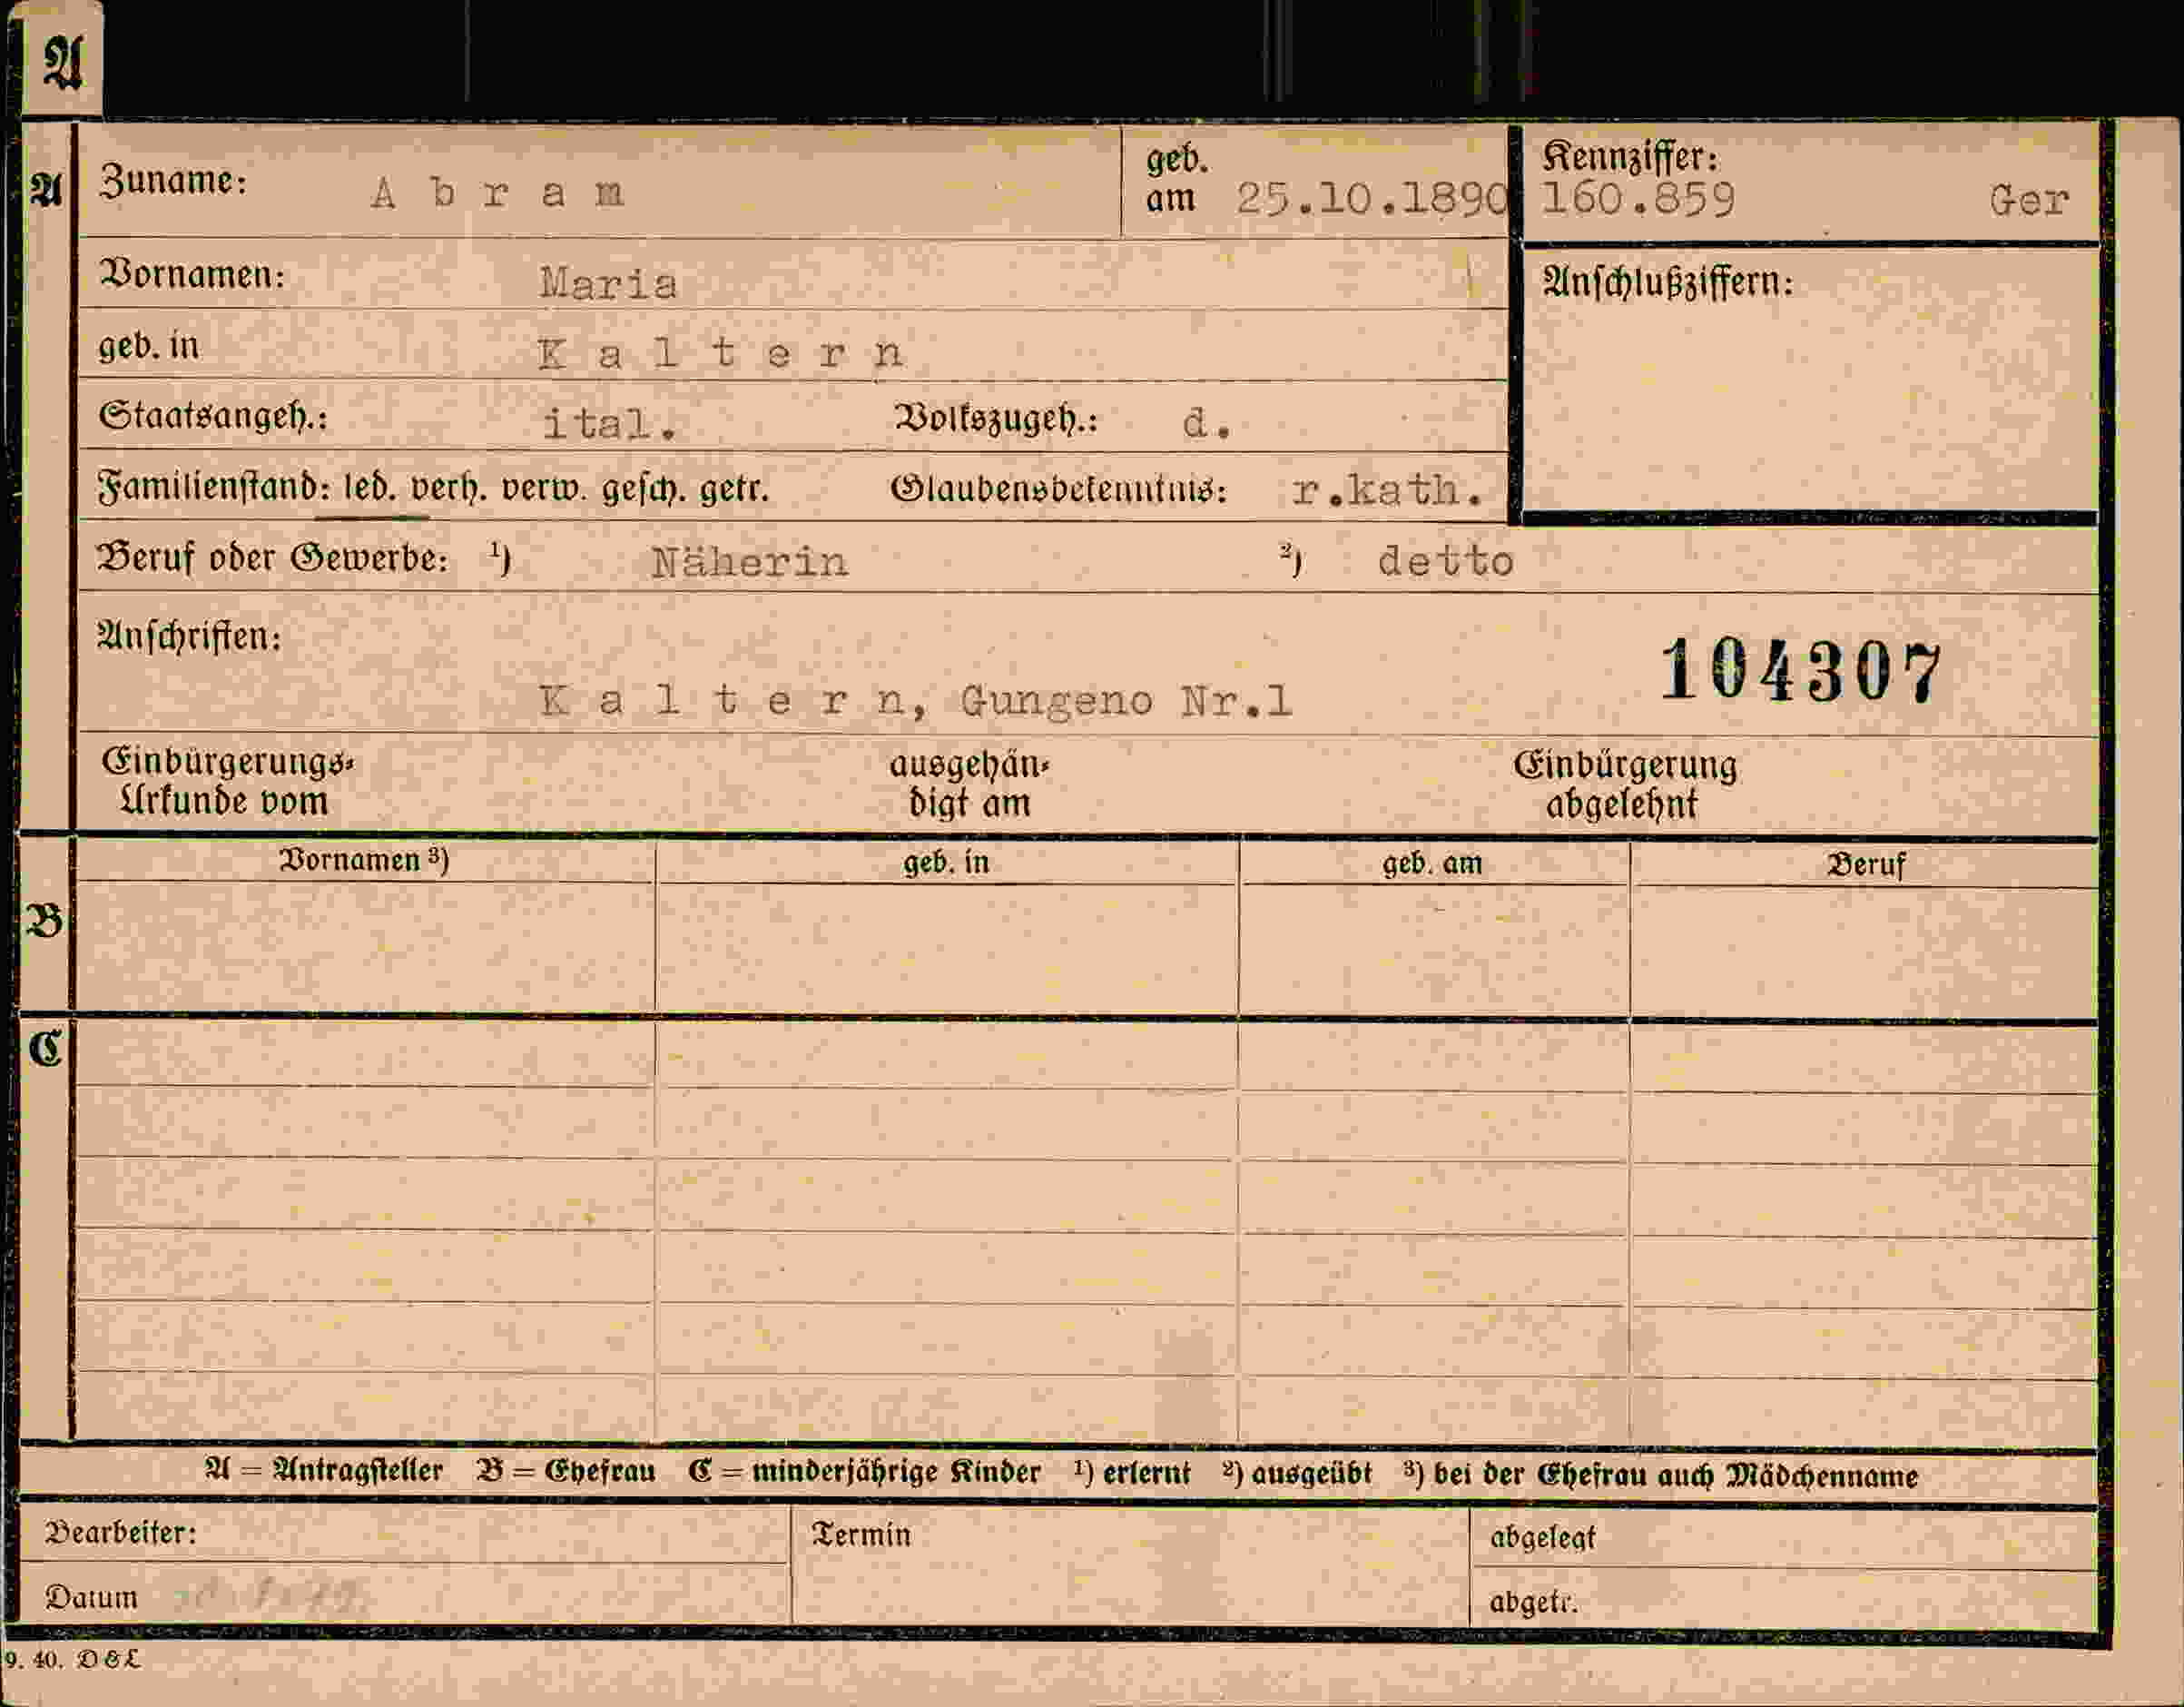 A
A
Zuname: Abram
geb. am 25.10.1890
Kennziffer: 160.859 Ger
Vornamen: Maria
Anschlußziffern:
geb. in Kaltern
Staatsangeh.: ital. Volkszugeh.: d.
Familienstand: led. verh. verw. gesch. getr. Glaubensbekenntnis: r.kath.
Beruf oder Gewerbe: 1) Näherin 2) detto
Anschriften:
104307
Kaltern, Gungeno Nr.1
Einbürgerungs- ausgehän- Einbürgerung
Urkunde vom digt am abgelehnt
Vornamen 3) geb. in geb. am Beruf
B
C
A = Antragsteller B = Ehefrau C = minderjährige Kinder 1) erlernt 2) ausgeübt 3) bei der Ehefrau auch Mädchenname
Bearbeiter: Termin abgelegt
Datum abgetr.
9. 40. D & L